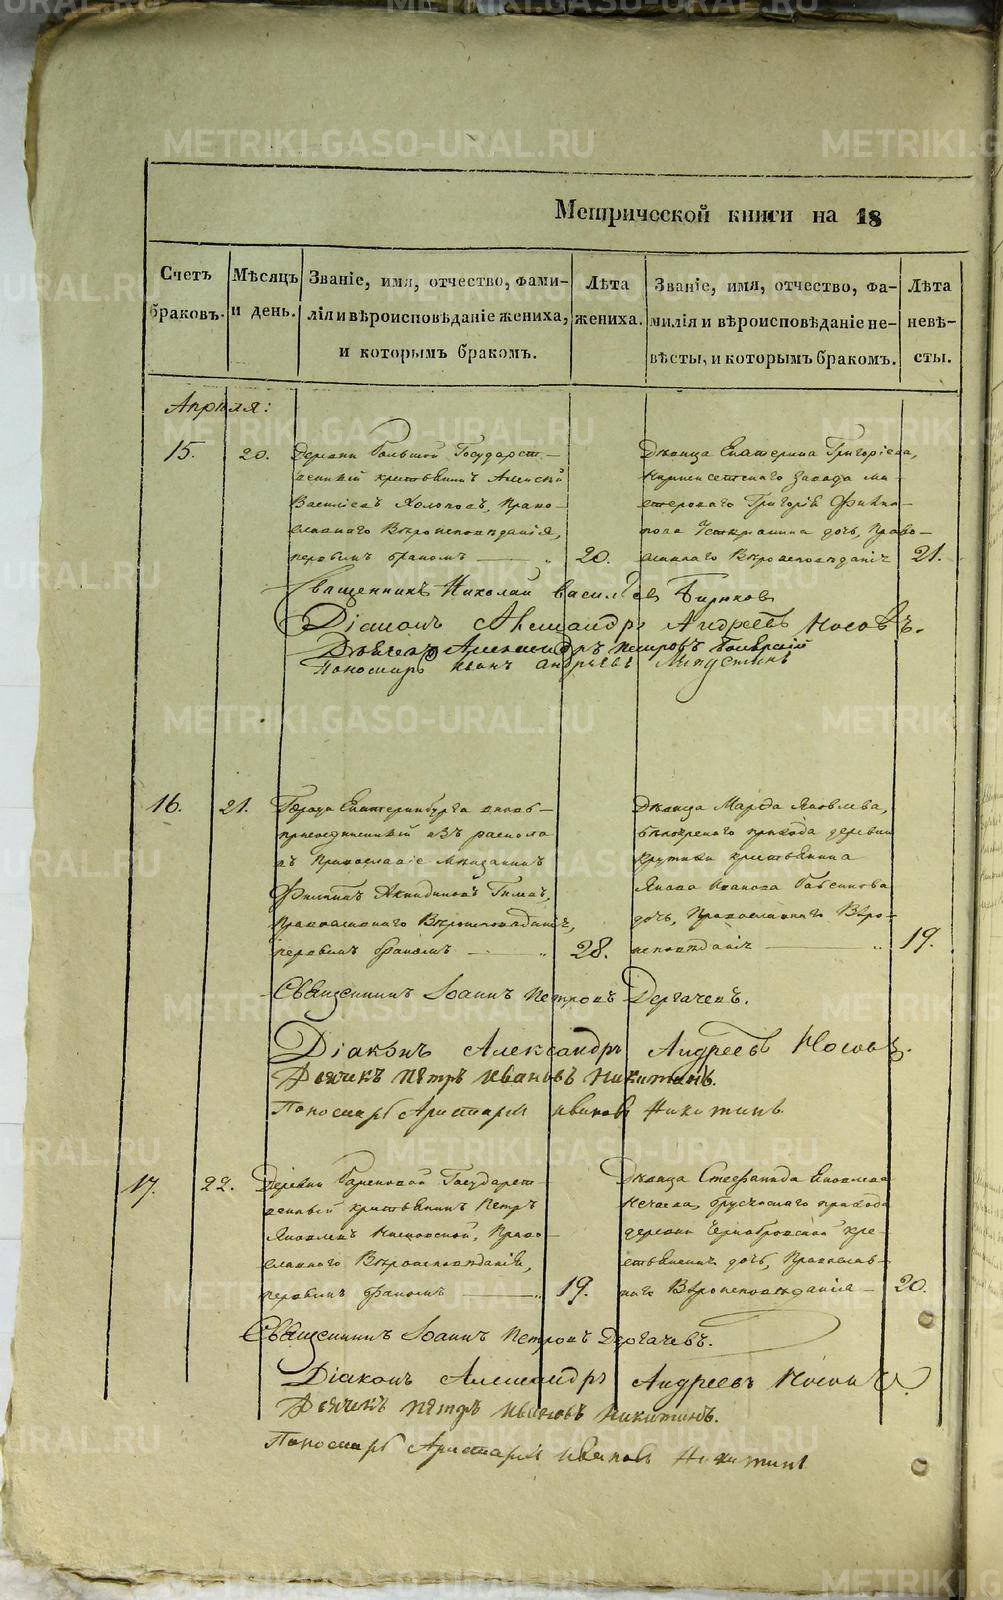 Метрической книги на 18
Счетъ браковъ.
Мѣсяцъ и день.
Званіе, имя, отчество, фами-
лія и вѣроисповѣданіе жениха,
и которымъ бракомъ.
Лѣта жениха.
Званіе, имя, отчество, фа-
милія и вѣроисповѣданіе не-
вѣсты, и которымъ бракомъ.
Лѣта невѣ-
сты.
Апрѣля:
15.
20.
Деревни Большой Государст-
венный крестьянинъ Алексѣй
Васильевъ Холоповъ, Право-
славнаго Вѣроисповѣданія,
первымъ бракомъ
20.
Дѣвица Екатерина Григоріева,
завода ма-
стероваго Григорія Филип-
пова дочь, Право-
славнаго Вѣроисповѣданія
21.
Священникъ Николай Васильевъ Бирюковъ
Діаконъ Александръ Андреевъ Носовъ.
Дьячекъ Александръ Петровъ
Пономарь Иванъ Андреевъ
16.
21.
Города Екатеринбурга вновь
присоединенный изъ раскола
къ Православію Мѣщанинъ
Филиппъ Акиндиновъ
Православнаго Вѣроисповѣданія,
первымъ бракомъ
28.
Дѣвица Марѳа Яковлева,
прихода деревни
Крутихи крестьянина
Якова Иванова
дочь, Православнаго Вѣро-
исповѣданія
19.
Священникъ Іоаннъ Петровъ Дергачевъ.
Діаконъ Александръ Андреевъ Носовъ.
Дьячекъ Петръ Ивановъ Никитинъ.
Пономарь Аристархъ Ивановъ Никитинъ
17.
22.
Деревни Государст-
венный крестьянинъ Петръ
Яковлевъ Право-
славнаго Вѣроисповѣданія,
первымъ бракомъ
19.
Дѣвица Стефанида Яковлева
Брусянскаго прихода
деревни Чернобровской кре-
стьянинъ дочь, Православ-
наго Вѣроисповѣданія
20.
Священникъ Іоаннъ Петровъ Дергачевъ.
Діаконъ Александръ Андреевъ Носовъ.
Дьячекъ Петръ Ивановъ Никитинъ.
Пономарь Аристархъ Ивановъ Никитинъ
METRIKI.GASO-URAL.RU